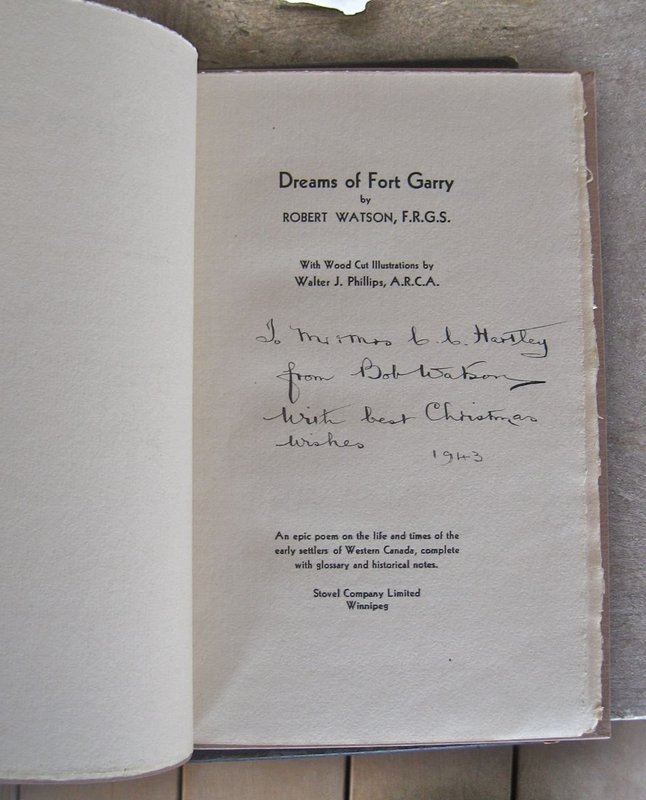 Dreams of Fort Garry
by
ROBERT WATSON, F.R.G.S.
With Wood Cut Illustrations by
Walter J. Phillips, A.R.C.A.
To Mr & Mrs C. C. Hartley
from Bob Watson
With best Christmas
wishes
1943
An epic poem on the life and times of the
early settlers of Western Canada, complete
with glossary and historical notes.
Stovel Company Limited
Winnipeg